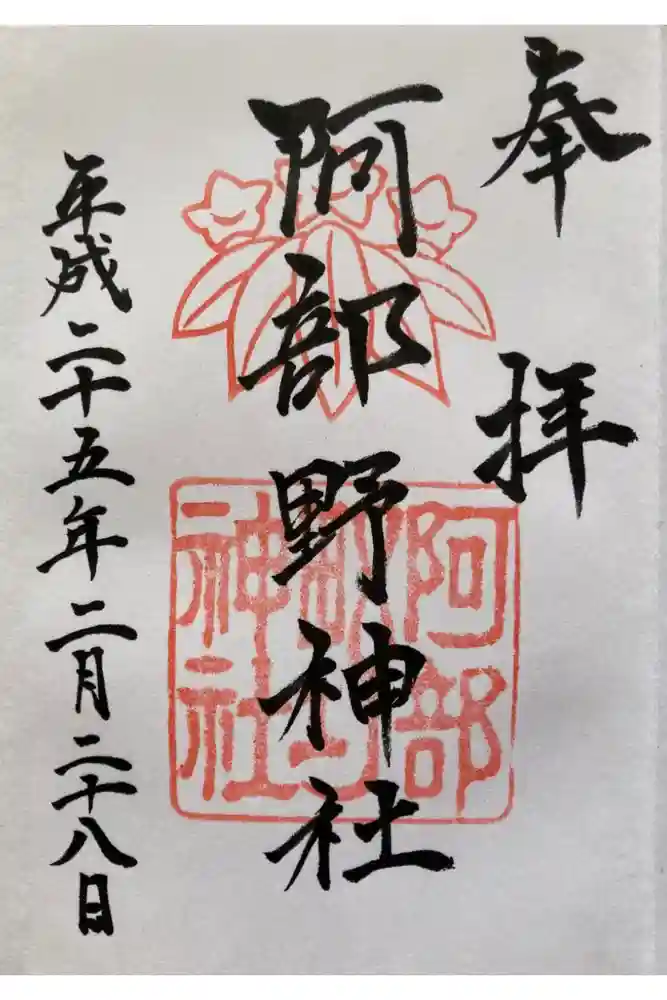 奉拝
阿部野神社
平成二十五年二月二十八日
阿部
神社